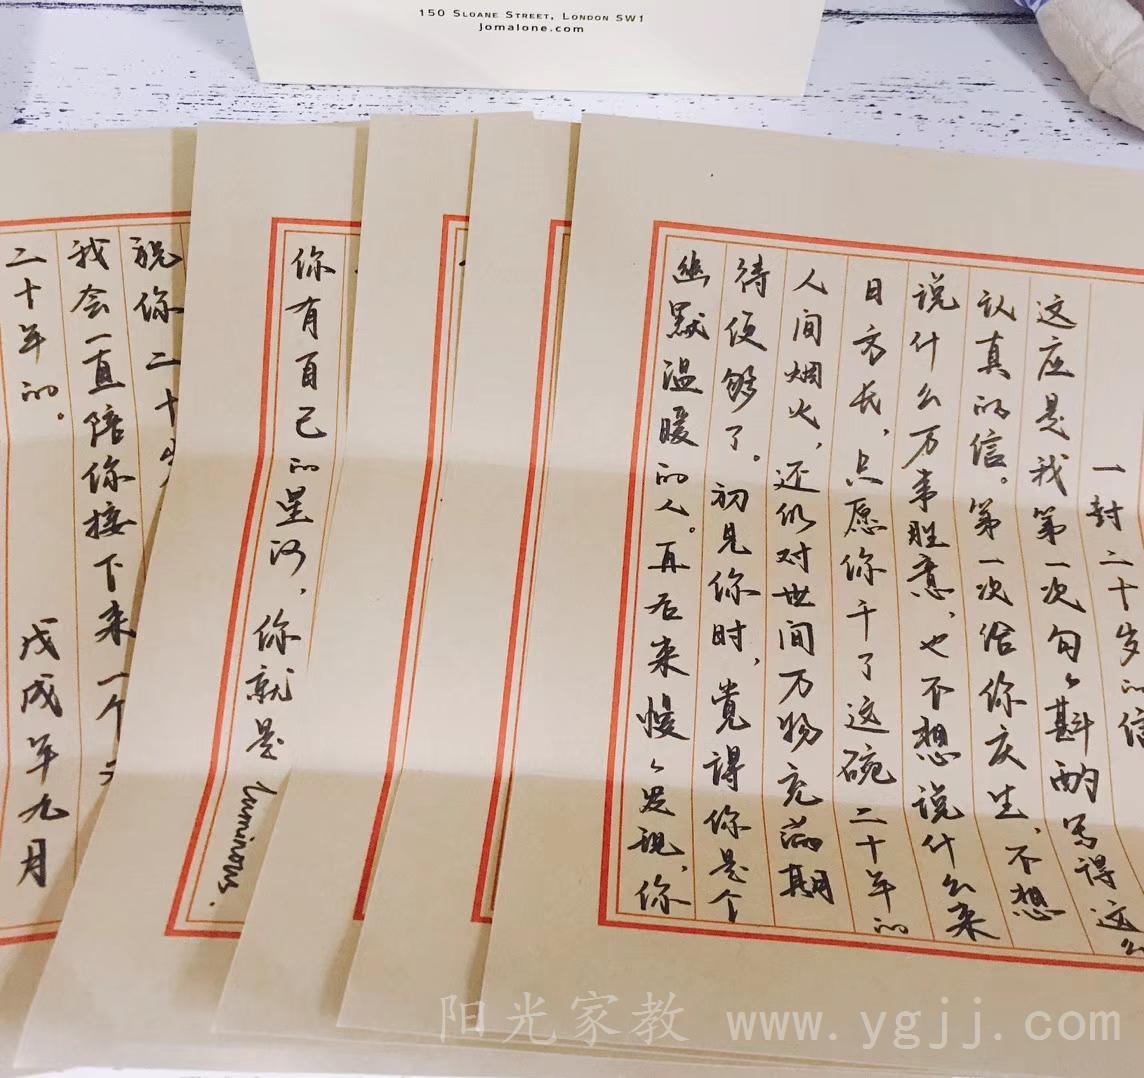 150 SLOANE STREET, LONDON SW1
Jomalone.com
一封二十岁的信
这应是我第一次句々斟酌写得这么
认真的信。第一次给你庆生，不想
说什么万事胜意，也不想说什么来
日方长，只愿你干了这碗二十年的
人间烟火，还仍对世间万物充满期
待便够了。初见你时，觉得你是个
幽默温暖的人。再后来慢々发现，你
你有自己的星河，你就是luminous.
祝你二十岁
我会一直陪你接下来一个
二十年的。
戊戌年九月
阳光家教 www.ygjj.com